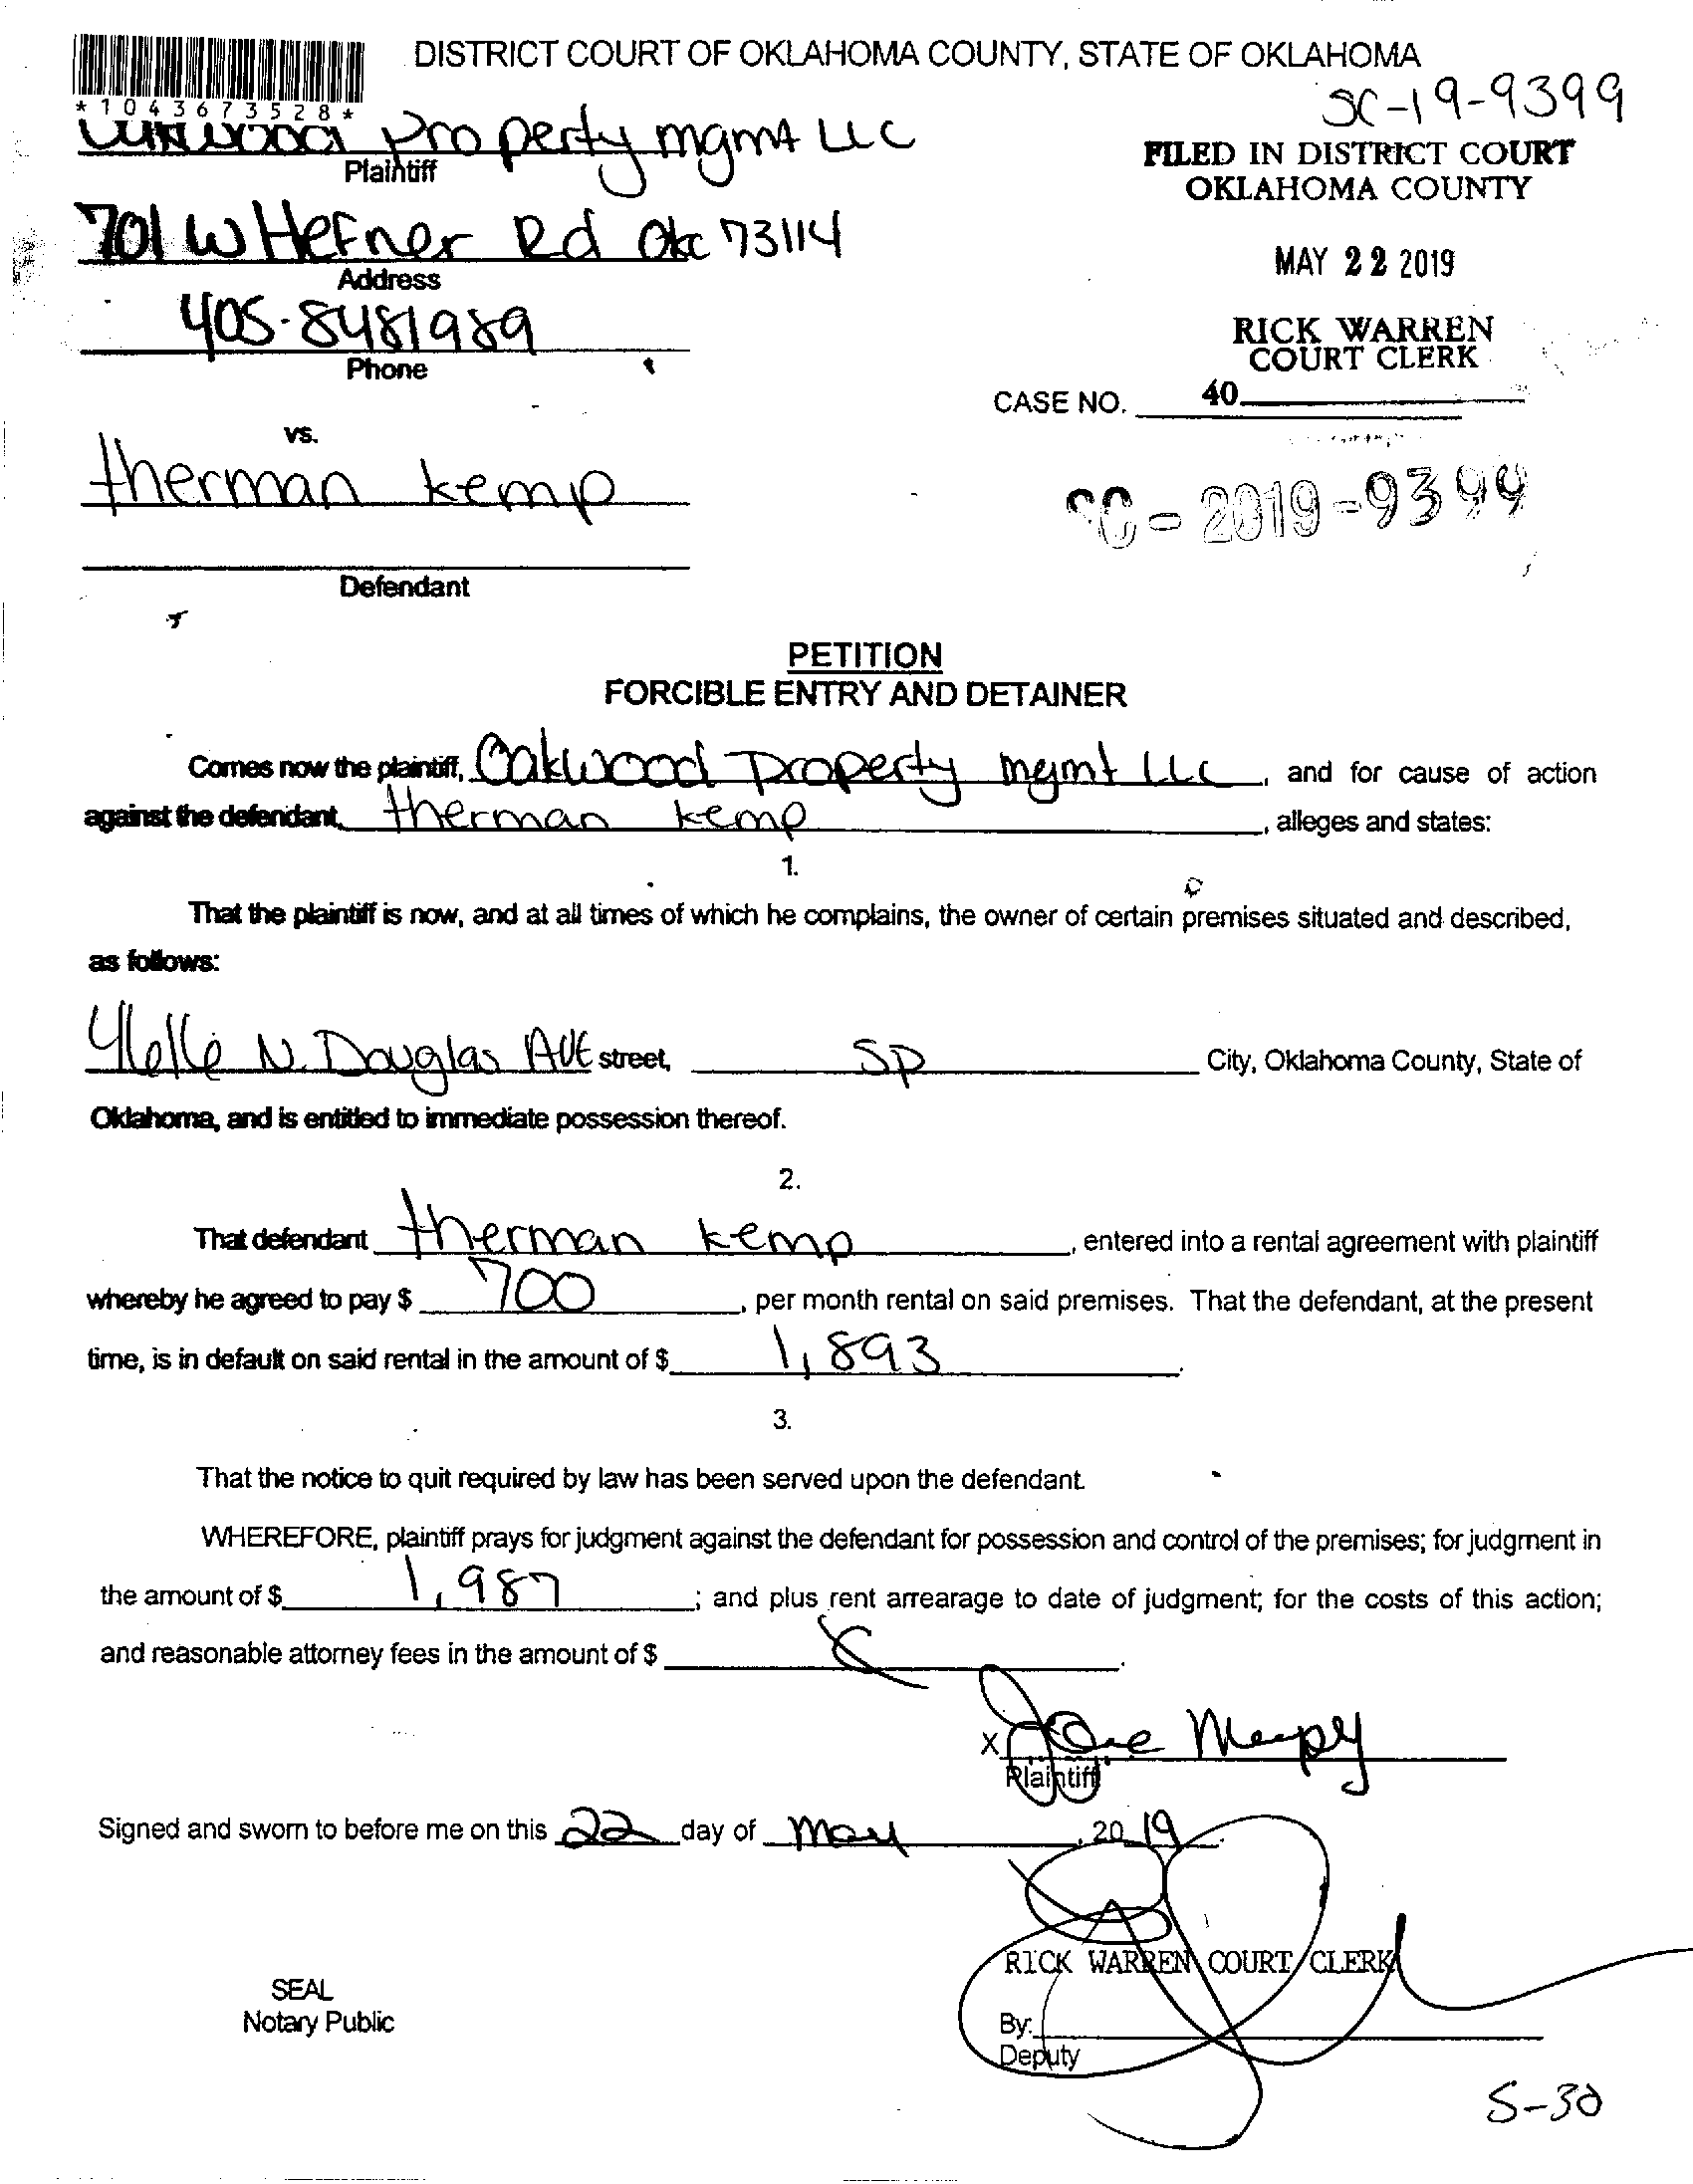 DISTRICT COURT OF OKLAHOMA COUNTY, STATE OF OKLAHOMA
*1043673528*
SC-19-9399
Oakwood Property mgmt LLC
Plaintiff
FILED IN DISTRICT COURT
OKLAHOMA COUNTY
701 W Hefner Rd Okc 73114
Address
MAY 22 2019
405-8481989
Phone
RICK WARREN
COURT CLERK
CASE NO. 40
vs.
therman kemp
SC-2019-9399
Defendant
PETITION
FORCIBLE ENTRY AND DETAINER
Comes now the plaintiff, Oakwood Property mgmt LLC, and for cause of action
against the defendant, therman kemp, alleges and states:
1.
That the plaintiff is now, and at all times of which he complains, the owner of certain premises situated and described,
as follows:
N. Douglas AVE street, SP City, Oklahoma County, State of
Oklahoma, and is entitled to immediate possession thereof.
2.
That defendant therman kemp, entered into a rental agreement with plaintiff
whereby he agreed to pay $ 700, per month rental on said premises. That the defendant, at the present
time, is in default on said rental in the amount of $ 1,893.
3.
That the notice to quit required by law has been served upon the defendant.
WHEREFORE, plaintiff prays for judgment against the defendant for possession and control of the premises; for judgment in
the amount of $ 1,987; and plus rent arrearage to date of judgment; for the costs of this action;
and reasonable attorney fees in the amount of $
X
Plaintiff
Signed and sworn to before me on this 22 day of May, 2019.
RICK WARREN COURT CLERK
SEAL
Notary Public
By:
Deputy
5-30